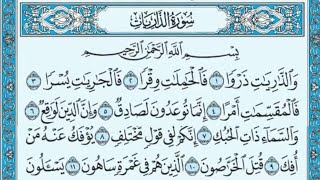 سُورَةُ الذَّارِيَاتِ
بِسْمِ اللَّهِ الرَّحْمَٰنِ الرَّحِيمِ
وَالذَّٰرِيَٰتِ ذَرْوًا ١ فَالْحَٰمِلَٰتِ وِقْرًا ٢ فَالْجَٰرِيَٰتِ يُسْرًا ٣
فَالْمُقَسِّمَٰتِ أَمْرًا ٤ إِنَّمَا تُوعَدُونَ لَصَادِقٌ ٥ وَإِنَّ الدِّينَ لَوَٰقِعٌ ٦
وَالسَّمَآءِ ذَاتِ الْحُبُكِ ٧ إِنَّكُمْ لَفِي قَوْلٍ مُّخْتَلِفٍ ٨ يُؤْفَكُ عَنْهُ مَنْ
أُفِكَ ٩ قُتِلَ الْخَرَّٰصُونَ ١٠ الَّذِينَ هُمْ فِي غَمْرَةٍ سَاهُونَ ١١ يَسْـَٔلُونَ